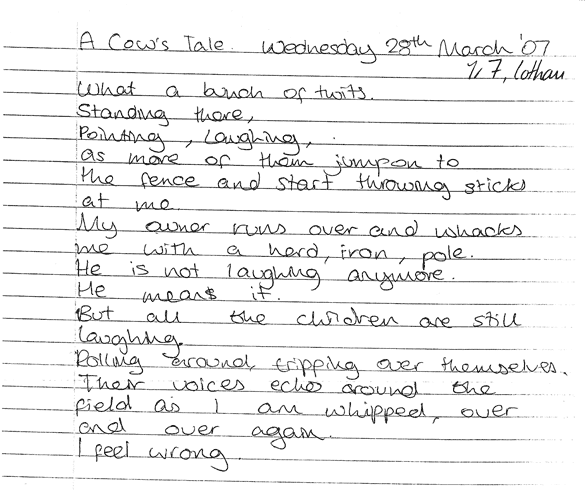 A Cow's Tale. Wednesday 28th March '07
What a bunch of twits.
Standing there,
Pointing, Laughing,
as more of them jump on to
the fence and start throwing sticks
at me.
My owner runs over and whacks
me with a hard, iron, pole.
He is not laughing anymore.
He means it.
But all the children are still
laughing.
Rolling around, tripping over themselves.
Their voices echo around the
field as I am whipped, over
and over again.
I feel wrong.